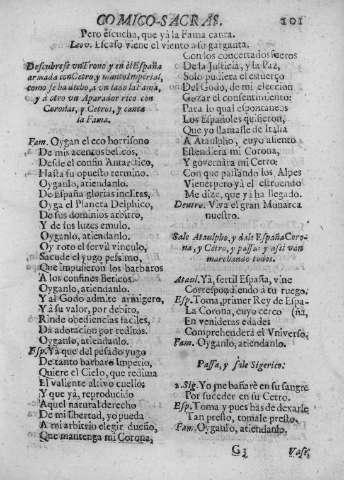 COMICO-SACRAS. 101
Pero escucha, que yà la Fama canta.
Leov. Escaso viene el viento a su garganta.
Descubrese vn Trono, y en èl España
armada con Cetro, y manto Imperial,
como se ha dicho, à un lado la Fama,
y à otro un Aparador rico con
Coronas, y Cetros, y canta
la Fama.
Fam. Oygan el eco horrisono
De mis acentos belicos,
Desde el confin Antarctico,
Hasta su opuesto termino.
Oyganlo, atiendanlo.
De España glorias inclitas,
Oyga el Planeta Delphico,
De sus dominios arbitro,
Y de sus luzes emulo.
Oyganlo, atiendanlo.
Oy roto el servil vinculo,
Sacude el yugo pessimo,
Que impusieron los barbaros
A los confines Ibericos.
Oyganlo, atiendanlo.
Y al Godo admite armigero,
Y à su valor, por debito,
Rinde obediencias faciles,
Dà adoracion por reditos.
Oyganlo, atiendanlo.
Esp. Yà que del pesado yugo
De tanto barbaro Imperio,
Quiere el Cielo, que redima
El valiente altivo cuello;
Y que yà, reproducido
Aquel natural derecho
De mi libertad, yo pueda
A mi arbitrio elegir dueño,
Que mantenga mi Corona,
Con los concertados fueros
De la Justicia, y la Paz,
Solo pudiera el esfuerço
Del Godo, de mi eleccion
Gozar el consentimiento:
Para lo qual espontaneos
Los Españoles quisieron,
Que yo llamasse de Italia
A Ataulpho, cuyo aliento
Estenderà mi Corona,
Y governarà mi Cetro:
Con que passando los Alpes
Viene; pero yà el estruendo
Me dize, que yà ha llegado.
Dentro. Viva el gran Monarca
nuestro.
Sale Ataulpho, y dale España Coro-
na, y Cetro, y passa: y assi van
marchando todos.
Ataul. Yà, fertil España, vine
Correspondiendo à tu ruego.
Esp. Toma, primer Rey de Espa-
La Corona, cuyo cerco (ña,
En venideras edades
Comprehenderà el Vniverso,
Fam. Oyganlo, atiendanlo.
Passa, y sale Sigerico.
2. Sig. Yo me bañarè en su sangre
Por suceder en su Cetro.
Esp. Toma y pues has de dexarle
Tan presto, tomale presto.
Fam. Oyganlo, atiendanlo.
G3 Vase